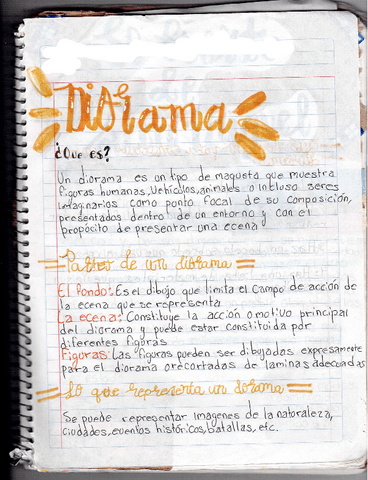 Diorama
¿Que es?
Un diorama es un tipo de maqueta que muestra
figuras humanas, vehiculos, animales o incluso seres
imaginarios como punto focal de su composición,
presentados dentro de un entorno y con el
proposito de presentar una ecena
Partes de un diorama
El Fondo: Es el dibujo que limita el campo de acción de
la ecena que se representa
La ecena: Constituye la acción o motivo principal
del diorama y puede estar constituida por
diferentes figuras
Figuras: Las figuras pueden ser dibujadas expresamente
para el diorama o recortadas de laminas adecuadas
Lo que representa un diorama
Se puede representar imagenes de la naturaleza,
ciudades, eventos históricos, batallas, etc.